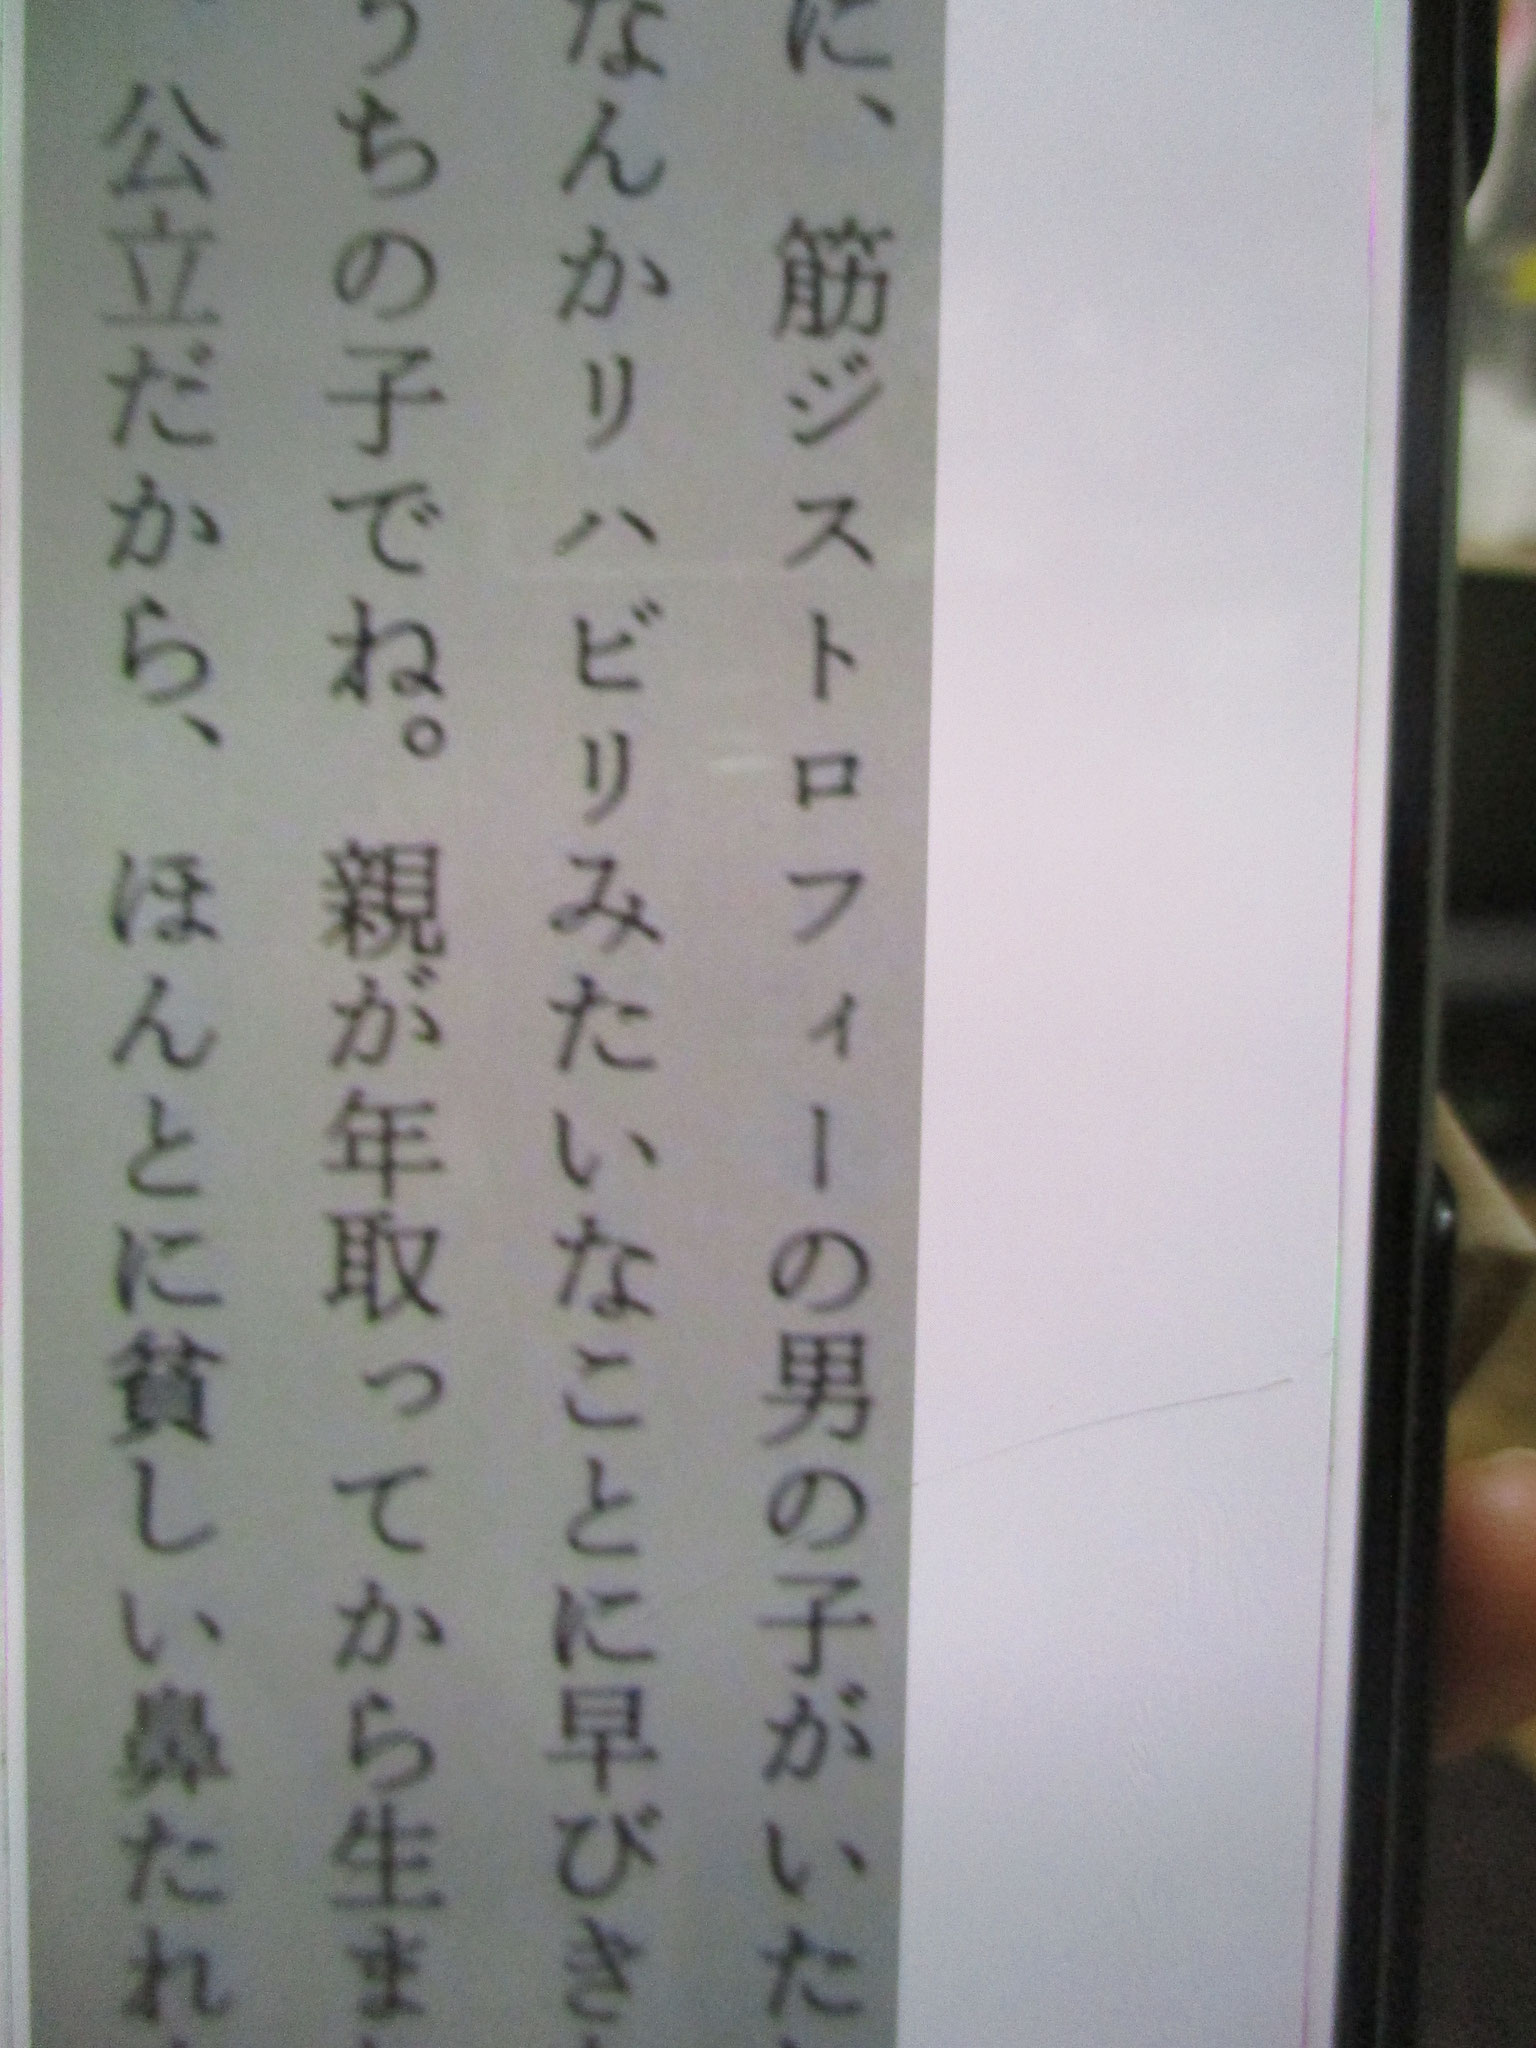 に、筋ジストロフィーの男の子がいた
なんかリハビリみたいなことに早びき
うちの子でね。親が年取ってから生ま
公立だから、ほんとに貧しい鼻たれ